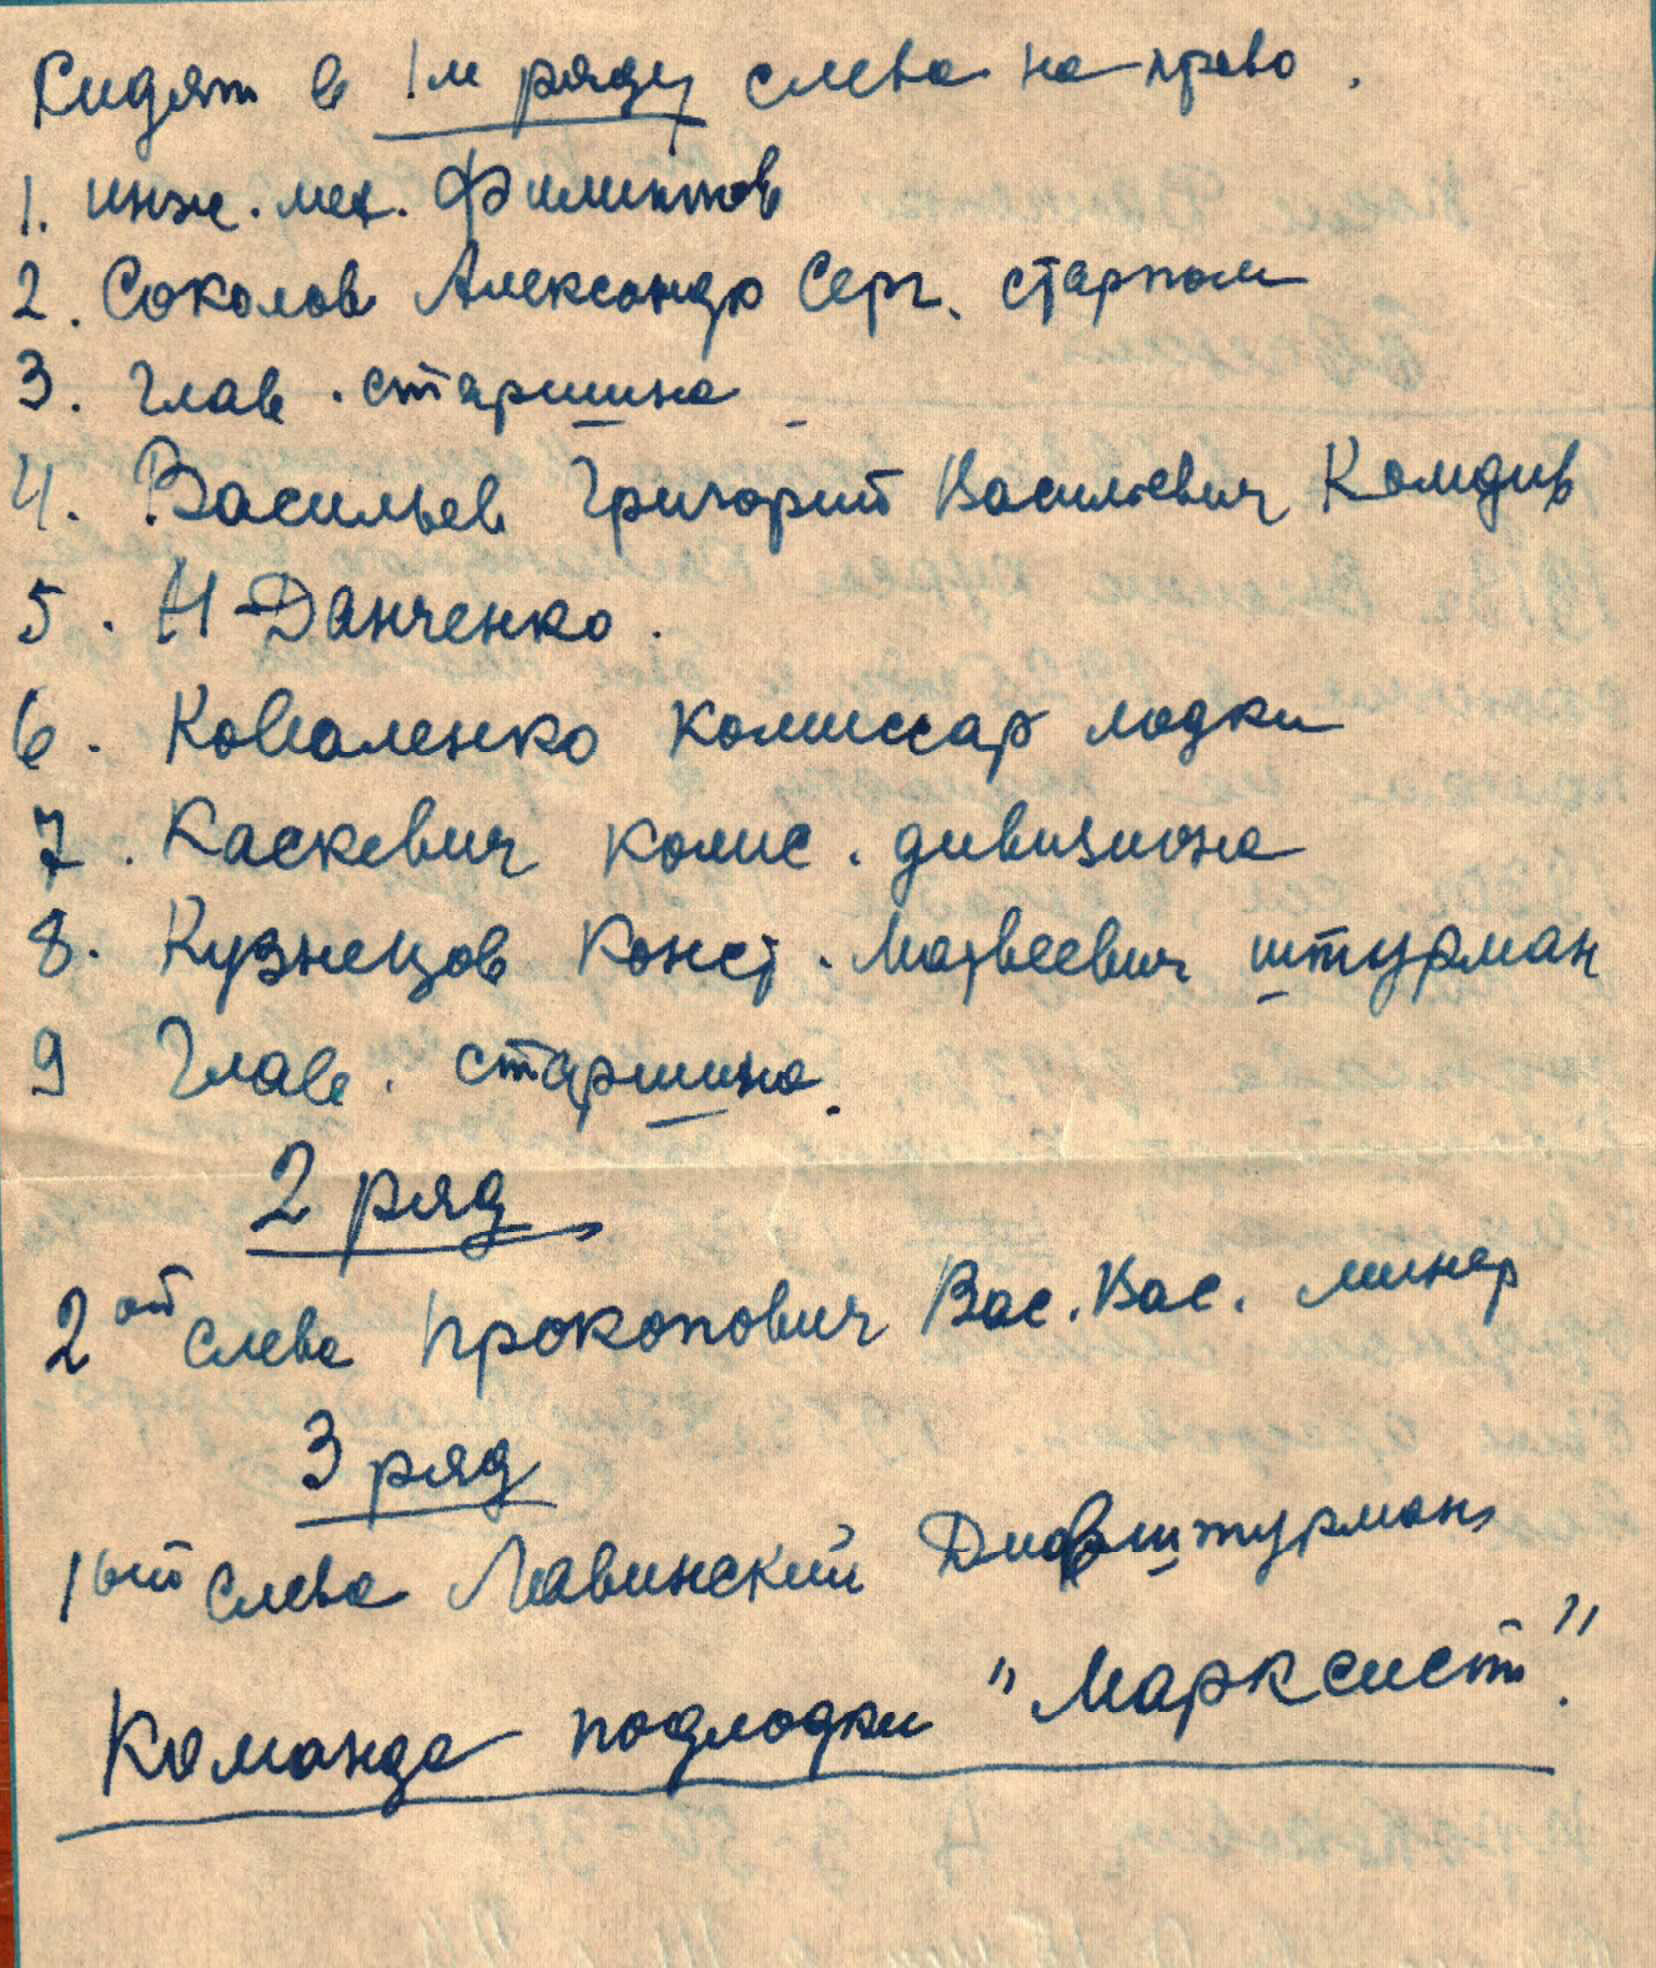 Сидят в 1м ряду слева на право.
1. инж. мех. Филиппов
2. Соколов Александр Серг. старпом
3. Глав. старшина
4. Васильев Григорий Васильевич Комдив
5. Н Данченко.
6. Коваленко комиссар лодки
7. Каскевич комис. дивизиона
8. Кузнецов Конст. Матвеевич штурман
9 Глав. старшина.
2 ряд
2 ой слева Прокопович Вас. Вас. минер
3 ряд
1 ый слева Лавинский Дивштурман
Команда подлодки "Марксист".